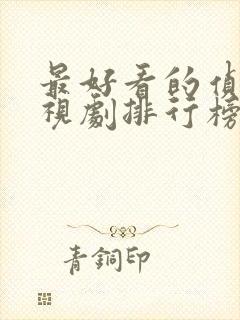 最好看的偵
視劇排行榜
青銅印